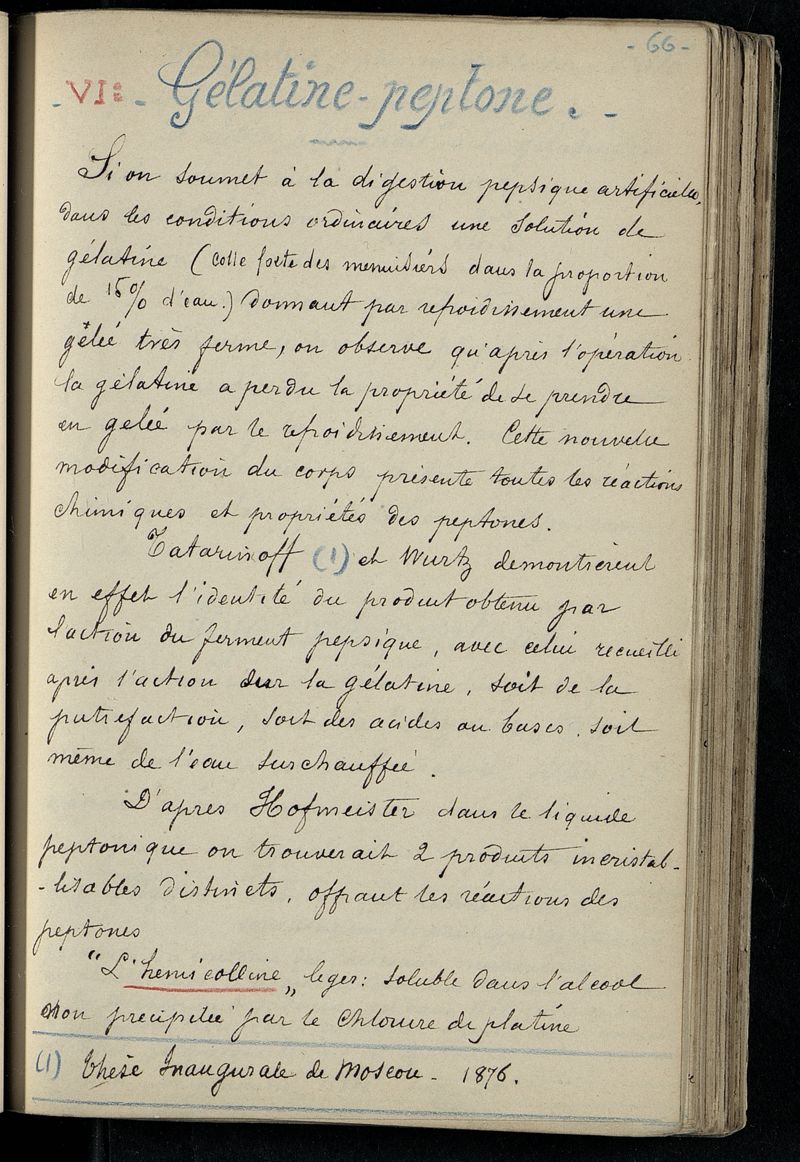 - 66 -
- VIº - Gélatine-peptone. -
Si on soumet à la digestion pepsique artificielle,
dans les conditions ordinaires une solution de
gélatine (colle forte des menuisiers dans la proportion
de 15% d'eau.) donnant par refroidissement une
gelée très ferme, on observe qu'après l'opération
la gélatine a perdu la propriété de se prendre
en gelée par le refroidissement. Cette nouvelle
modification du corps présente toutes les réactions
chimiques et propriétés des peptones.
Tatarinoff (1) et Wurtz demontrèrent
en effet l'identité du produit obtenu par
l'action du ferment pepsique, avec celui recueilli
après l'action sur la gélatine, soit de la
putrefaction, soit des acides ou bases, soit
même de l'eau surchauffée.
D'apres Hofmeister dans le liquide
peptonique on trouverait 2 produits incristal-
-lisables distincts, offrant les réactions des
peptones
"L'hemicolline„ leger: soluble dans l'alcool
non precipitée par le Chlorure de platine
(1) Thèse Inaugurale de Moscou - 1876.